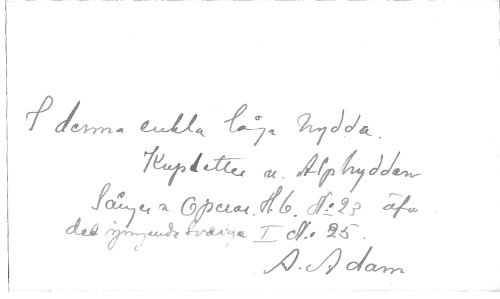 I denna enkla låga hydda.
Kupletter u. Alphyddan
Sånger u Operor. H. 6. No 23 äfv
det sjungande Sverige I No 25.
A. Adam